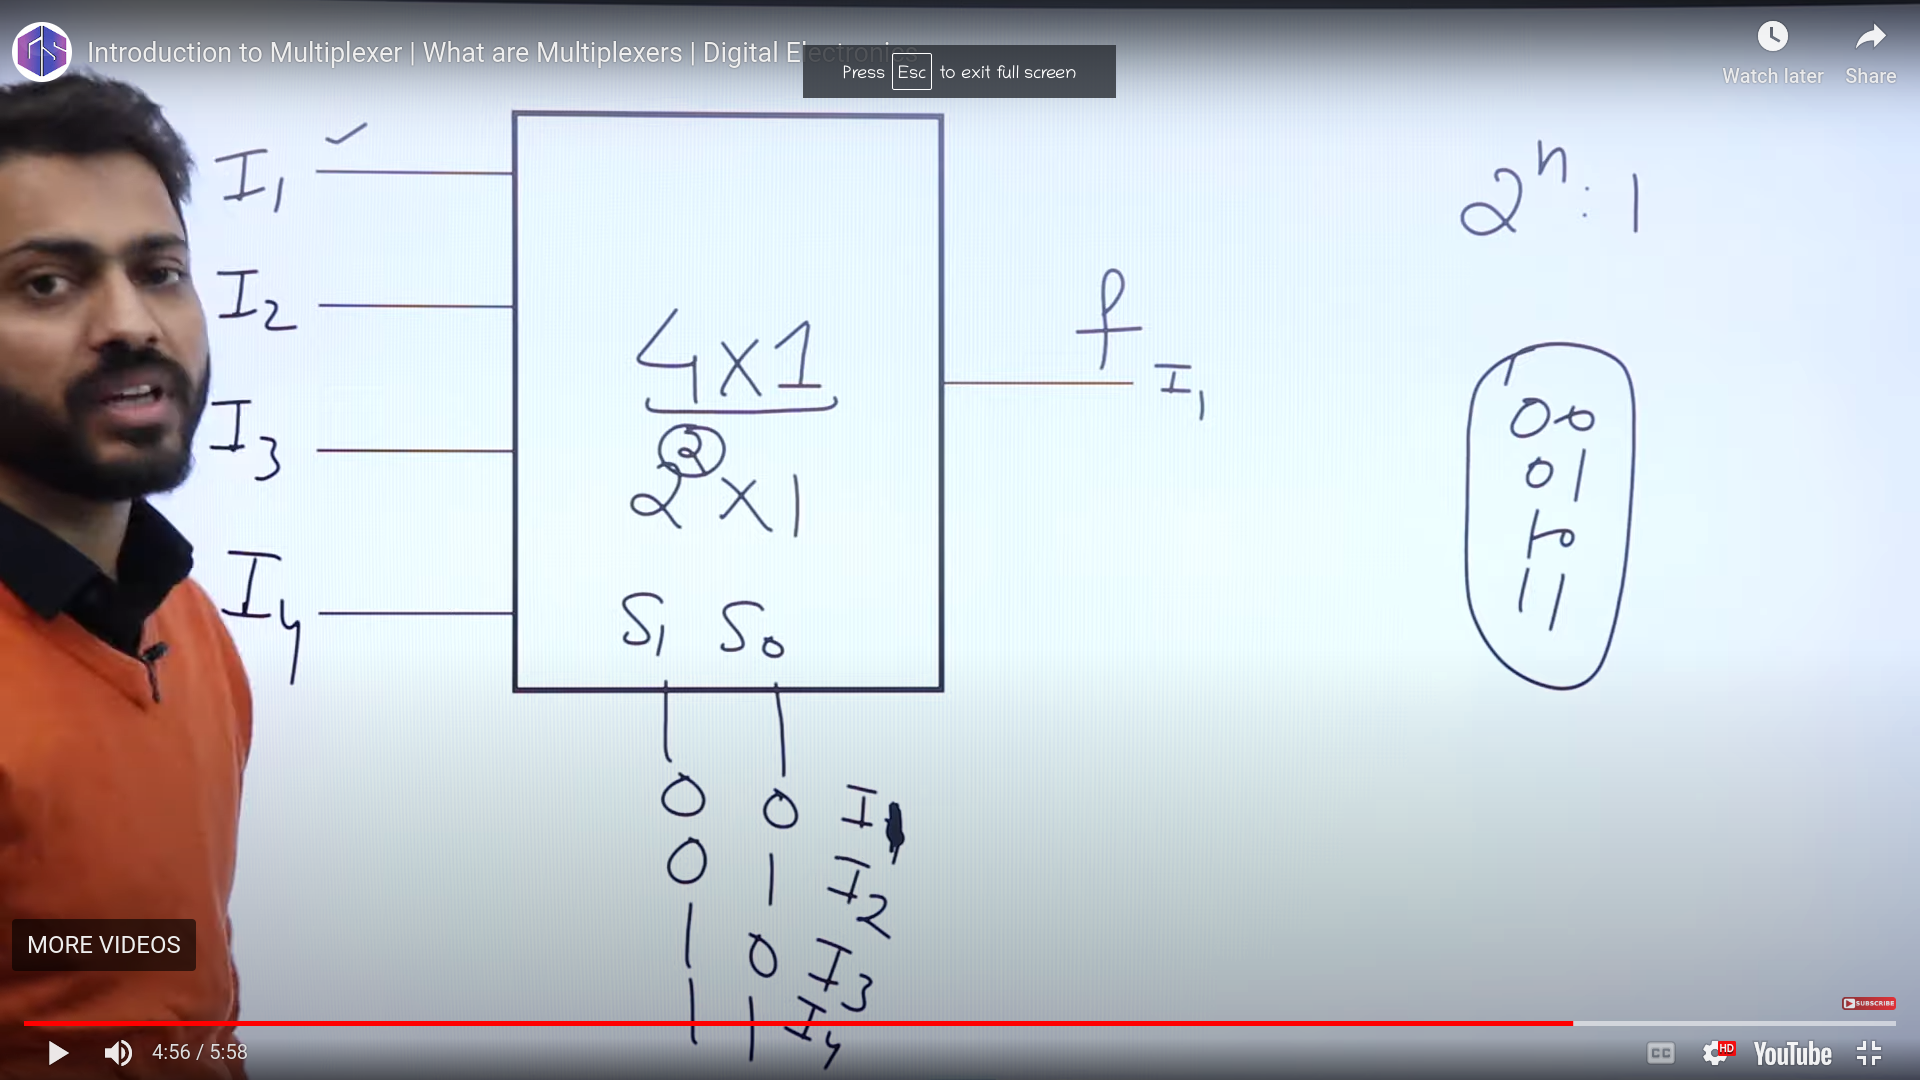 Introduction to Multiplexer | What are Multiplexers | Digital Electronics
Press Esc to exit full screen
Watch later
Share
I1
I2
I3
I4
4x1
2^2 x1
S1 S0
f
I1
2^n : 1
00
01
10
11
0 0 I1
0 1 I2
1 0 I3
1 1 I4
MORE VIDEOS
SUBSCRIBE
4:56 / 5:58
CC
HD
YouTube